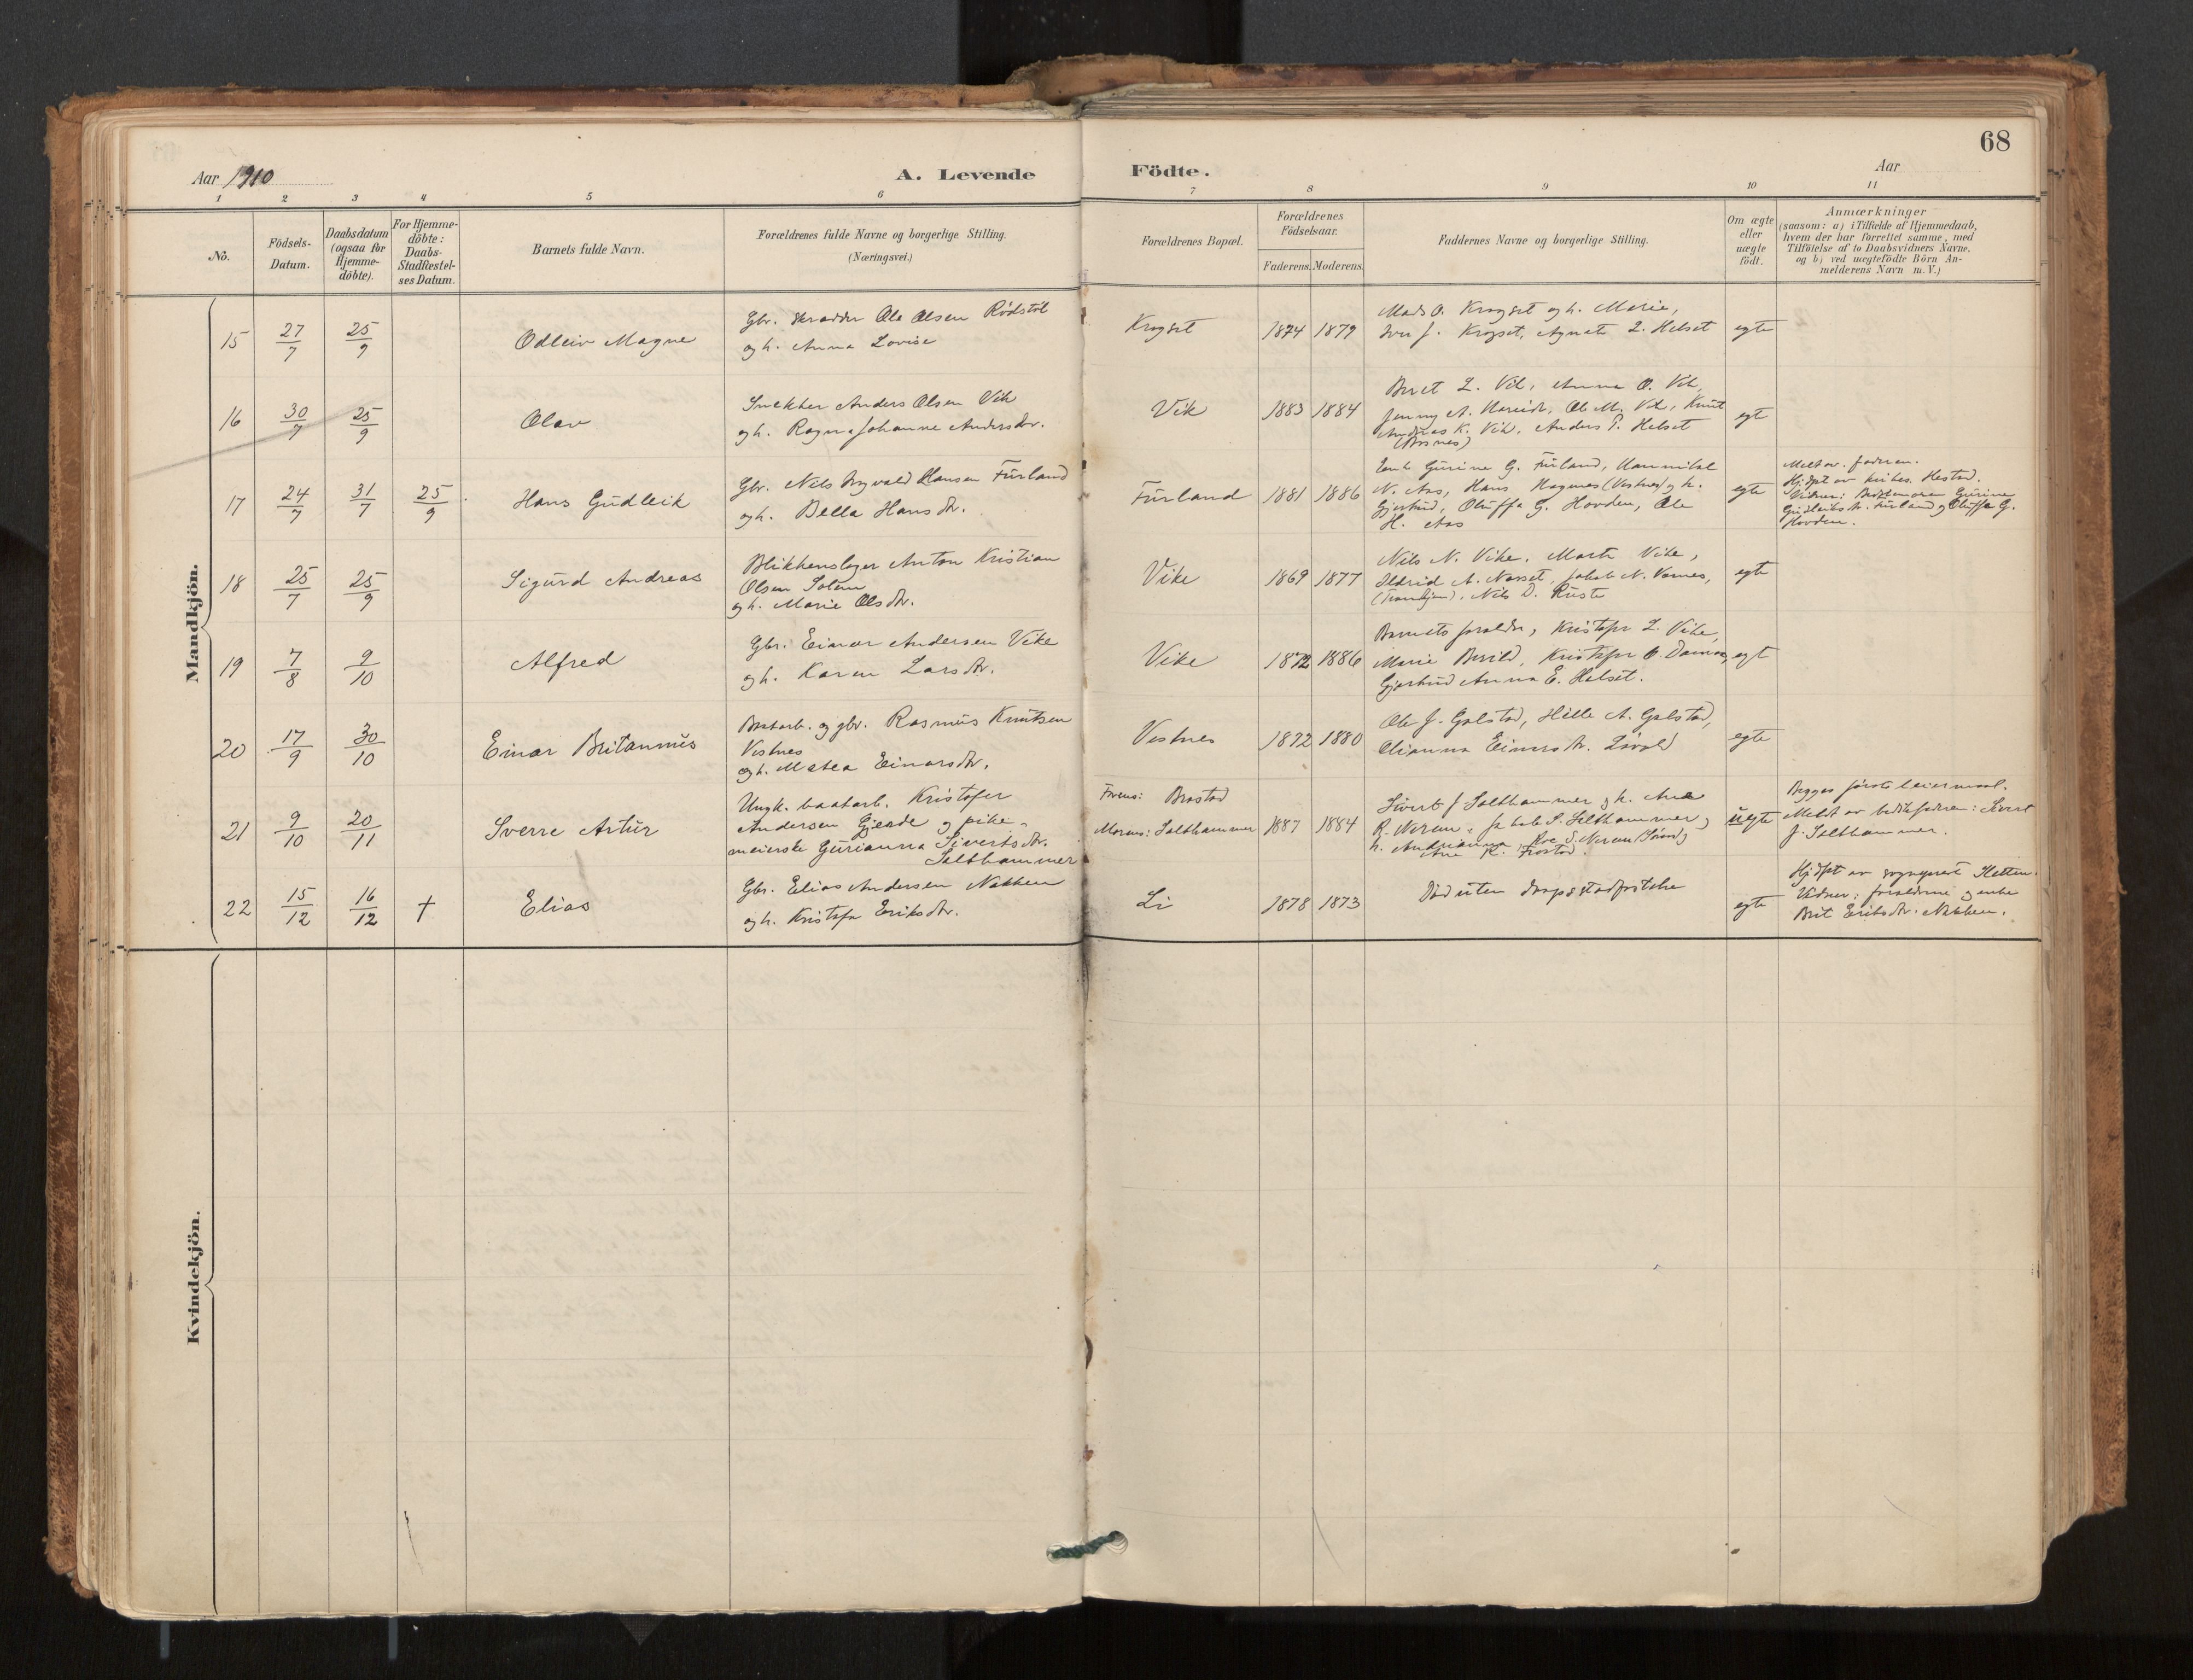 68
Aar 1910
A. Levende Födte.
Aar
1 2 3 4 5 6 7 8 9 10 11
No.
Födsels-Datum.
Daabsdatum (ogsaa for Hjemme-döbte).
For Hjemme-döbte: Daabs-Stadfæstel-ses Datum.
Barnets fulde Navn.
Forældrenes fulde Navne og borgerlige Stilling.
(Næringsvei.)
Forældrenes Bopæl.
Forældrenes Födselsaar.
Faderens. Moderens.
Faddernes Navne og borgerlige Stilling.
Om ægte eller uægte födt.
Anmærkninger
(saasom: a) i Tilfælde af Hjemmedaab,
hvem der har forrettet samme, med
Tilföielse af to Daabsvidners Navne,
og b) ved uægtefödte Börn An-
melderens Navn m. V.)
Mandkjön.
15 27/7 25/9 Odleiv Magne
Gbr. skrædder Ole Olsen Rödstöl
og h. Anna Lovise
Krogset 1874 1879
Mads O. Krogset og h. Marie,
Iver J. Krogset, Agnete L. Helset
egte
16 30/7 25/9 Olav
Snekker Anders Olsen Vik
og h. Ragna Johanne Andersdtr.
Vik 1883 1884
Beret L. Vik, Anna O. Vik,
Jenny A. Hareide, Ole M. Vik, Knut
Andreas K. Vik, Anders P. Helset
egt
17 24/7 31/7 25/9 Hans Gudleik
Gbr. Nils Ingvald Hansen Furland
og h. Bella Hansdtr.
Furland 1881 1886
Enke Gurine G. Furland, Hannibal
N. Aas, Hans Hagnes (Vestnes) og h.
Gjertrud, Oluffa G. Hovden, Ole
H. Aas
egte
Meldt av faderen.
Hjdpt av kirkes. Hestad.
Vidner: Bedstemoren Gurine
Gudleiksdtr. Furland og Oluffa G.
Hovden.
18 25/7 25/9 Sigurd Andreas
Blikkenslager Anton Kristian
Olsen Solem
og h. Marie Olsdtr.
Vike 1869 1877
Nils N. Vike, Marte Vike,
Eldrid A. Nesset, Jakob N. Vames,
(Trondhjem), Nils D. Ruste
egte
19 7/8 9/10 Alfred
Gbr. Einar Andersen Vike
og h. Karen Larsdtr.
Vike 1872 1886
Barnets forældre, Kristofer L. Vike,
Marie Berild, Kristofer O. Damas,
Gjertrud Anna E. Helset.
egt
20 17/9 30/10 Einar Britannus
Baatarb. og gbr. Rasmus Knutsen
Vestnes
og h. Matea Einarsdtr.
Vestnes 1872 1880
Ole J. Galstad, Hille A. Galstad,
Olianna Einarsdtr. Lövold
egte
21 9/10 20/11 Sverre Artur
Ungk. baatarb. Kristofer
Andersen Gjerde og pike-
meierske Gurianna Sivertsdtr.
Salthammer
Farens: Brastad
Morens: Salthammer 1887 1884
Sivert J Salthammer og h. Ane
R. Nerem, Jakob S. Salthammer og
h. Andrianna, Roe S. Nerem og
Ane K. Frostad.
uegte
Begges første leiermaal.
Meldt av bedstefaderen: Sivert
J. Salthammer.
22 15/12 16/12 † Elias
Gbr. Elias Andersen Nakken
og h. Kristofa Eriksdtr.
Li 1878 1873
Död uten daapsstadfestelse
egte
Hjdpt av sogneprest Hetten.
Vidner: forældrene og enke
Brit Eriksdtr. Nakken.
Kvindekjön.